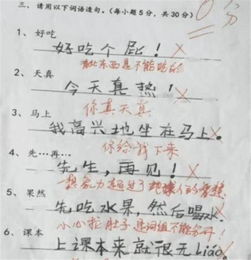 三、请用以下词语造句。(每小题5分,共30分) 0分
1、好吃
好吃个屁!
此东西是不能吃的
2、天真
今天真热!
你真天真
3、马上
我高兴地坐在马上。
你给我下来
4、先…再…
先生,再见!
想象力超过了地球人的智慧
5、果然
先吃水果,然后喝水
小心拉肚子 连词组不能分开
6、课本
上课本来就很无liáo。